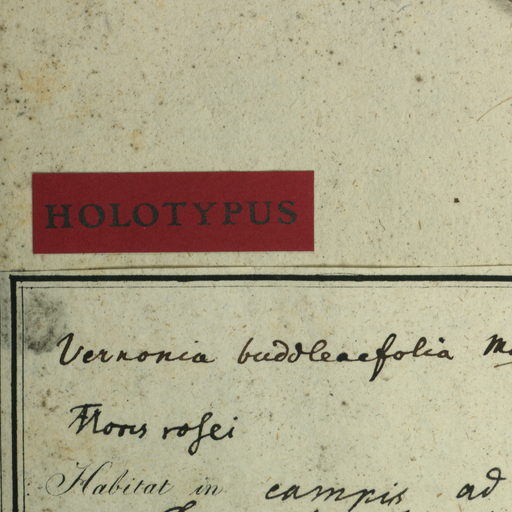 HOLOTYPUS
Vernonia buddleaefolia
Flores rosei
Habitat in campis ad